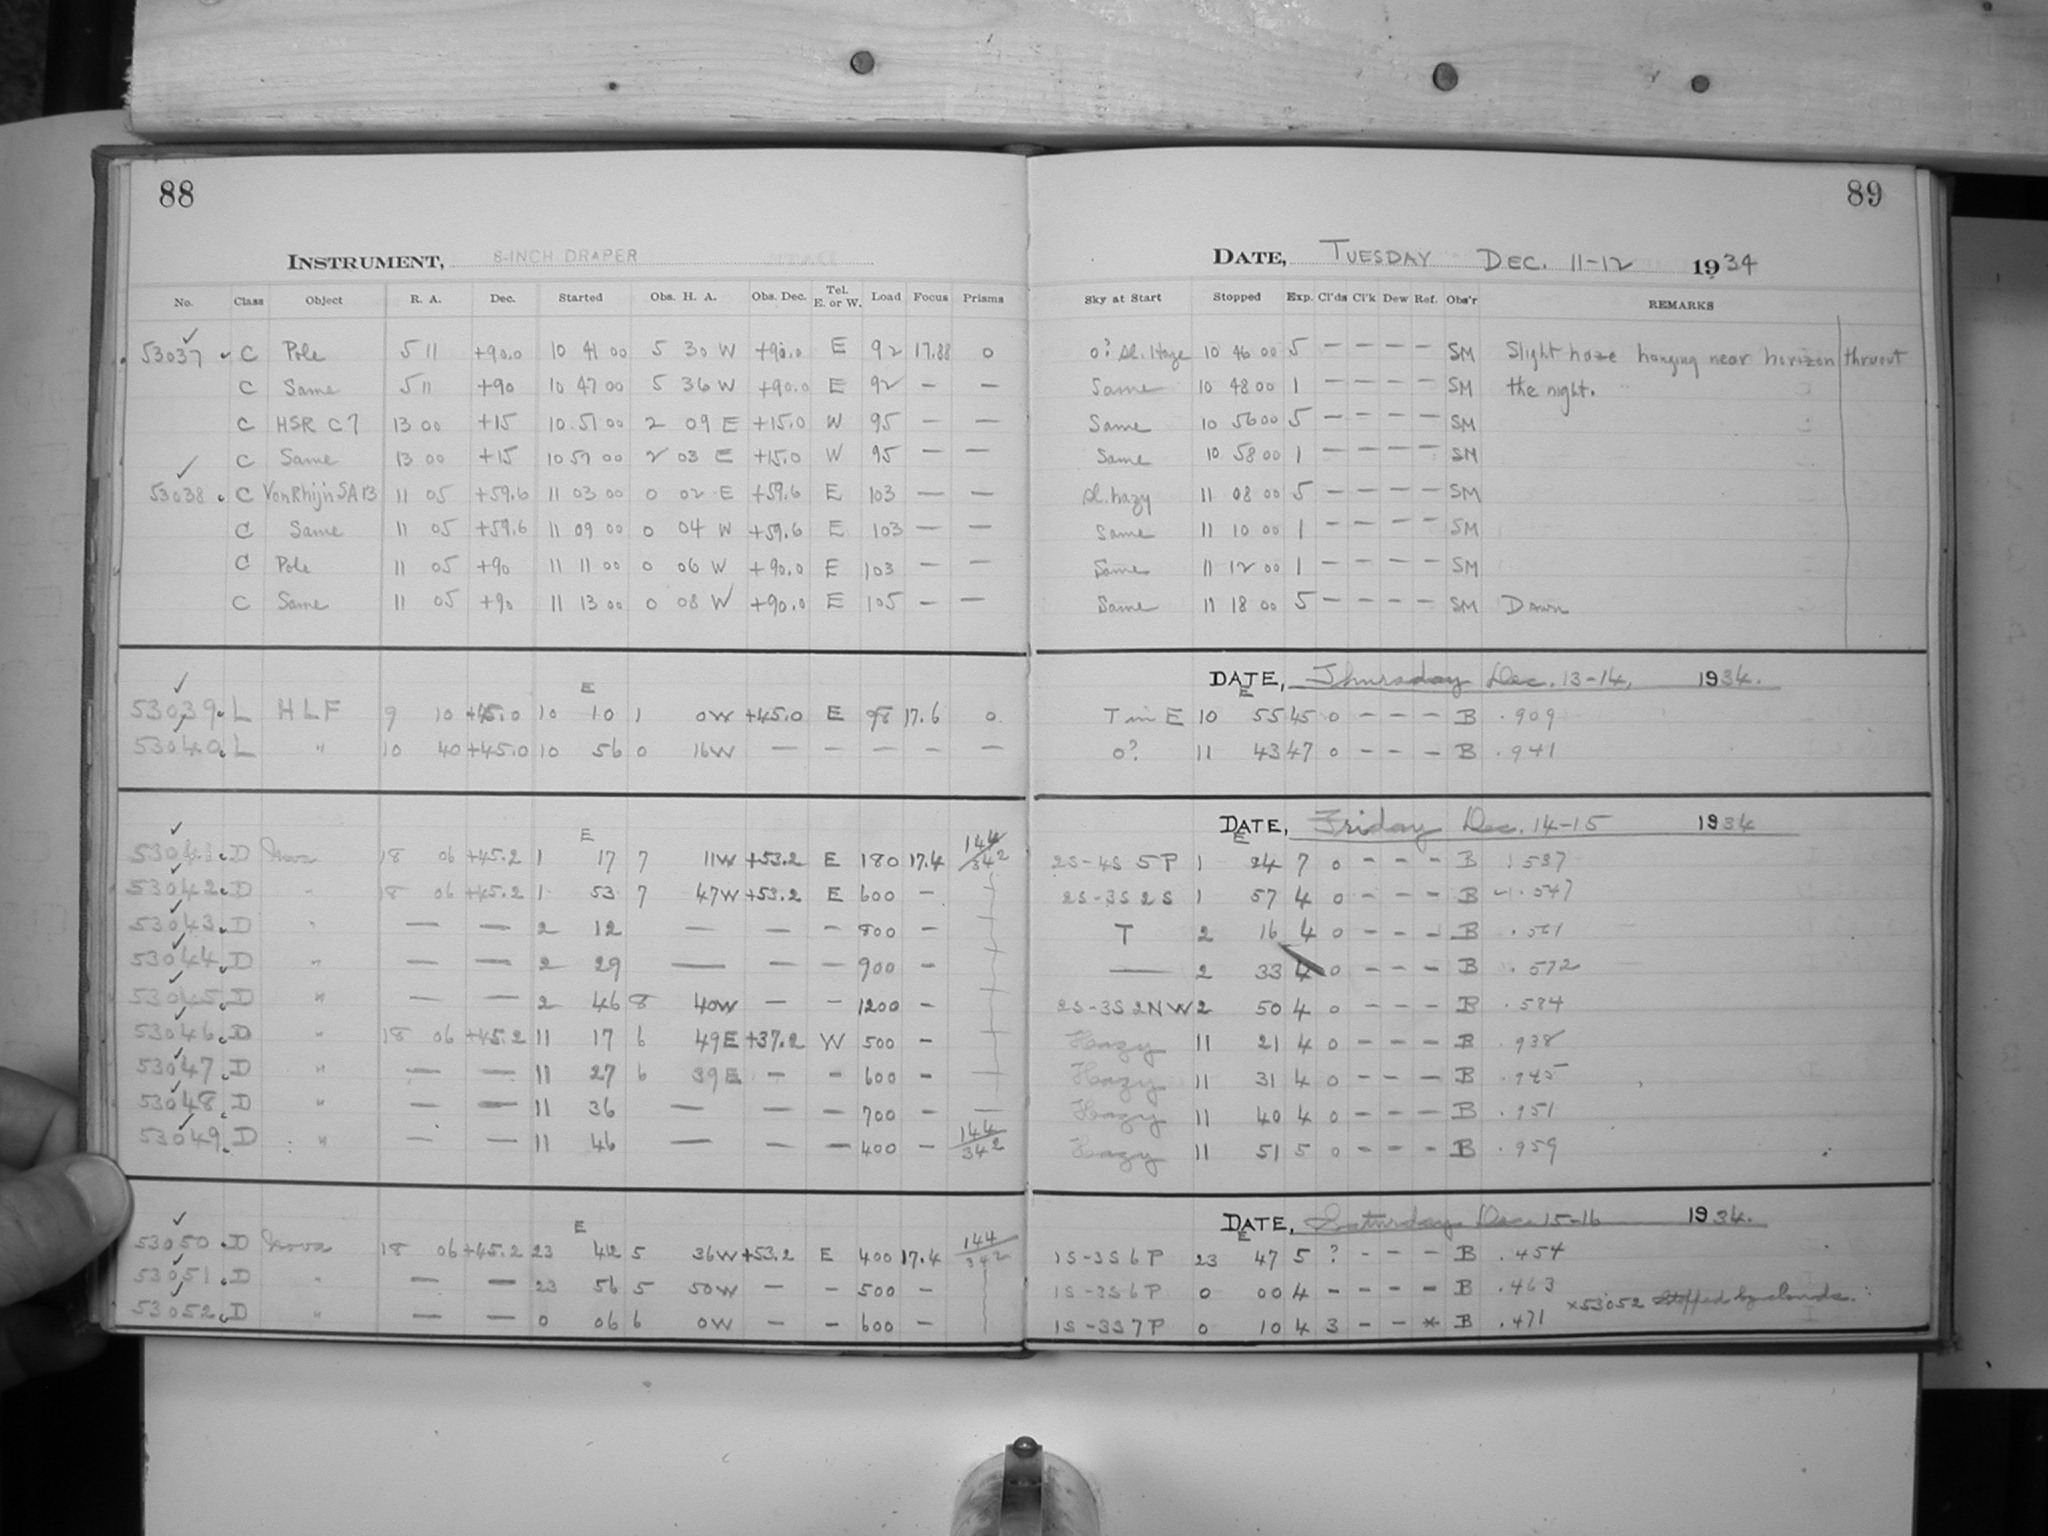 88
INSTRUMENT, 8-INCH DRAPER
No. Class Object R. A. Dec. Started Obs. H. A. Obs. Dec. Tel. E. or W. Load Focus Prisms
53037 C Pole 5 11 +90.0 10 41 00 5 30 W +90.0 E 92 17.88 0
C Same 5 11 +90 10 47 00 5 36 W +90.0 E 92 — —
C HSR C7 13 00 +15 10 51 00 2 09 E +15.0 W 95 — —
C Same 13 00 +15 10 57 00 2 03 E +15.0 W 95 — —
53038 C Von Rhijn SA 13 11 05 +59.6 11 03 00 0 02 E +59.6 E 103 — —
C Same 11 05 +59.6 11 09 00 0 04 W +59.6 E 103 — —
C Pole 11 05 +90 11 11 00 0 06 W +90.0 E 103 — —
C Same 11 05 +90 11 13 00 0 08 W +90.0 E 105 — —
E
53039 L HLF 9 10 +45.0 10 10 1 0W +45.0 E 98 17.6 0
53040 L " 10 40 +45.0 10 56 0 16W — — — — —
E
53041 D Nova 18 06 +45.2 1 17 7 11W +53.2 E 180 17.4 144/342
53042 D " 18 06 +45.2 1 53 7 47W +53.2 E 600 —
53043 D " — — 2 12 — — — 800 —
53044 D " — — 2 29 — — — 900 —
53045 D " — — 2 46 8 40W — — 1200 —
53046 D " 18 06 +45.2 11 17 6 49E +37.2 W 500 —
53047 D " — — 11 27 6 39E — — 600 —
53048 D " — — 11 36 — — — 700 — —
53049 D " — — 11 46 — — — 400 — 144/342
E
53050 D Nova 18 06 +45.2 23 42 5 36W +53.2 E 400 17.4 144/342
53051 D " — — 23 56 5 50W — — 500 —
53052 D " — — 0 06 6 0W — — 600 —
89
DATE, TUESDAY DEC. 11-12 1934
Sky at Start Stopped Exp. Cl'ds Cl'k Dew Ref. Obs'r REMARKS
0? Sl. Haze 10 46 00 5 — — — — SM Slight haze hanging near horizon thruout
Same 10 48 00 1 — — — — SM the night.
Same 10 56 00 5 — — — — SM
Same 10 58 00 1 — — — — SM
Sl. hazy 11 08 00 5 — — — — SM
Same 11 10 00 1 — — — — SM
Same 11 12 00 1 — — — — SM
Same 11 18 00 5 — — — — SM Dawn
DATE, Thursday Dec. 13-14, 1934.
E
T in E 10 55 45 0 — — — B .909
0? 11 43 47 0 — — — B .941
DATE, Friday Dec. 14-15 1934
E
2S-4S 5P 1 24 7 0 — — — B .537
2S-3S 2S 1 57 4 0 — — — B .547
T 2 16 4 0 — — — B .561
— 2 33 4 0 — — — B .572
2S-3S 2NW 2 50 4 0 — — — B .584
Hazy 11 21 4 0 — — — B .938
Hazy 11 31 4 0 — — — B .945
Hazy 11 40 4 0 — — — B .951
Hazy 11 51 5 0 — — — B .959
DATE, Saturday Dec. 15-16 1934.
E
1S-3S 6P 23 47 5 ? — — — B .454
1S-3S 6P 0 00 4 — — — — B .463
1S-3S 7P 0 10 4 3 — — * B .471 ×53052 Stopped by clouds.